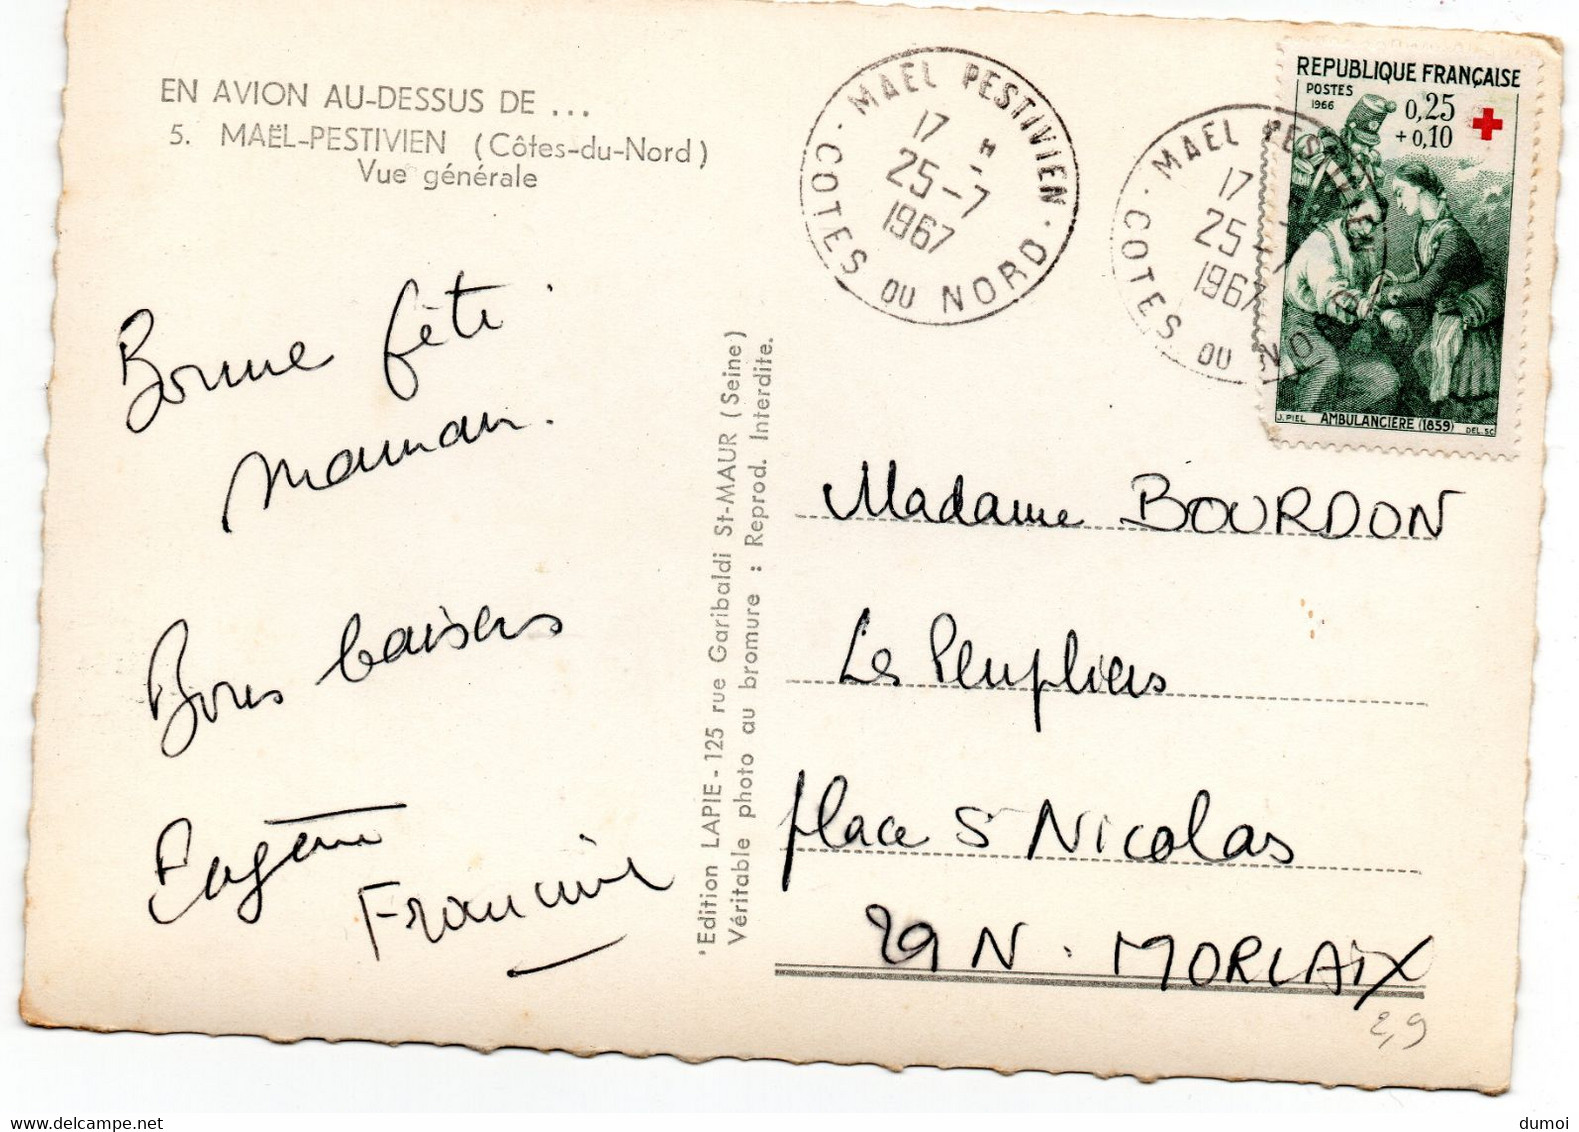 EN AVION AU-DESSUS DE ...
5. MAËL-PESTIVIEN (Côtes-du-Nord)
Vue générale
Bonne fête
maman.
Bons baisers
Eugène
Francine
'Edition LAPIE - 125 rue Garibaldi St-MAUR (Seine)
Véritable photo au bromure : Reprod. Interdite.
MAEL PESTIVIEN
17 H
25-7
1967
COTES DU NORD
MAEL PESTIVIEN
17
25-7
1967
COTES DU NORD
REPUBLIQUE FRANÇAISE
POSTES
1966
0,25
+0,10
J. PIEL AMBULANCIÈRE (1859) DEL. SC.
Madame BOURDON
Les Peupliers
place St Nicolas
29N. MORLAIX
2,9
www.delcampe.net
dumoi